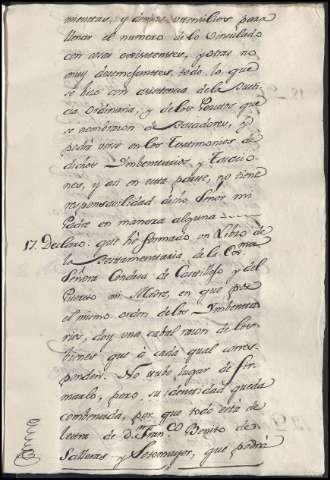 mienttas, y demas uttensilios para
llenar el numero de lo Vinculado
con ottos existtentes, y ottas no
muy desemejanttes, ttodo lo que
se hizo con asistencia de la Justi-
cia Ordinaria, y de los Peritos que
se nombraron de Tasadores, y
podrá verse en los Testtimonios de
dichos Ymbentarios, y Tasacio-
nes, y asi en esta partte, no tiene
responsavilidad dicho Señor mi
Padre en manera alguna
17. Declaro, que hé formado un Libro de
la Testtamenttaria de la
Señora Condesa de Castillejo y del
Puertto mi Madre, en que por
el mismo orden de los Ymbentta-
rios, doy una cabal razon de los
bienes que á cada qual corres-
ponden. No tube lugar de fir-
marlo, pero su identidad queda
comprovada, por que ttodo estta de
lettra de d.n Fran.co Benito de
y Sottomayor, que podrá